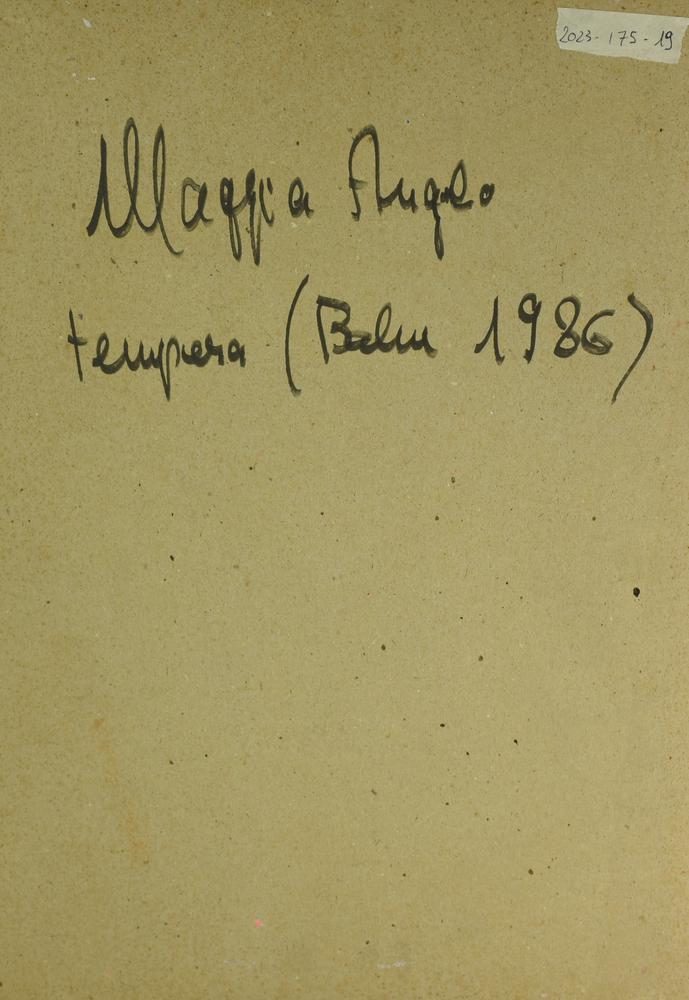 2023-175-19
Maggia Angelo
tempera (Belm 1986)